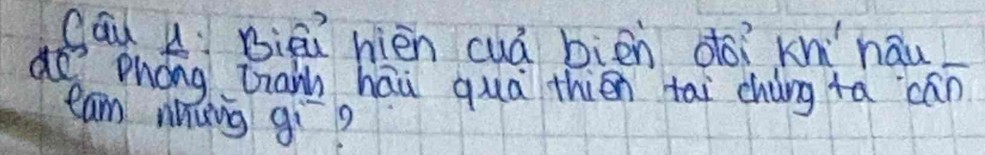 Câu 4: Biểu hiện cuả biến đổi khí hâu _
để phòng tránh hâu quả thiên tai chúng ta cần
làm những gì ?